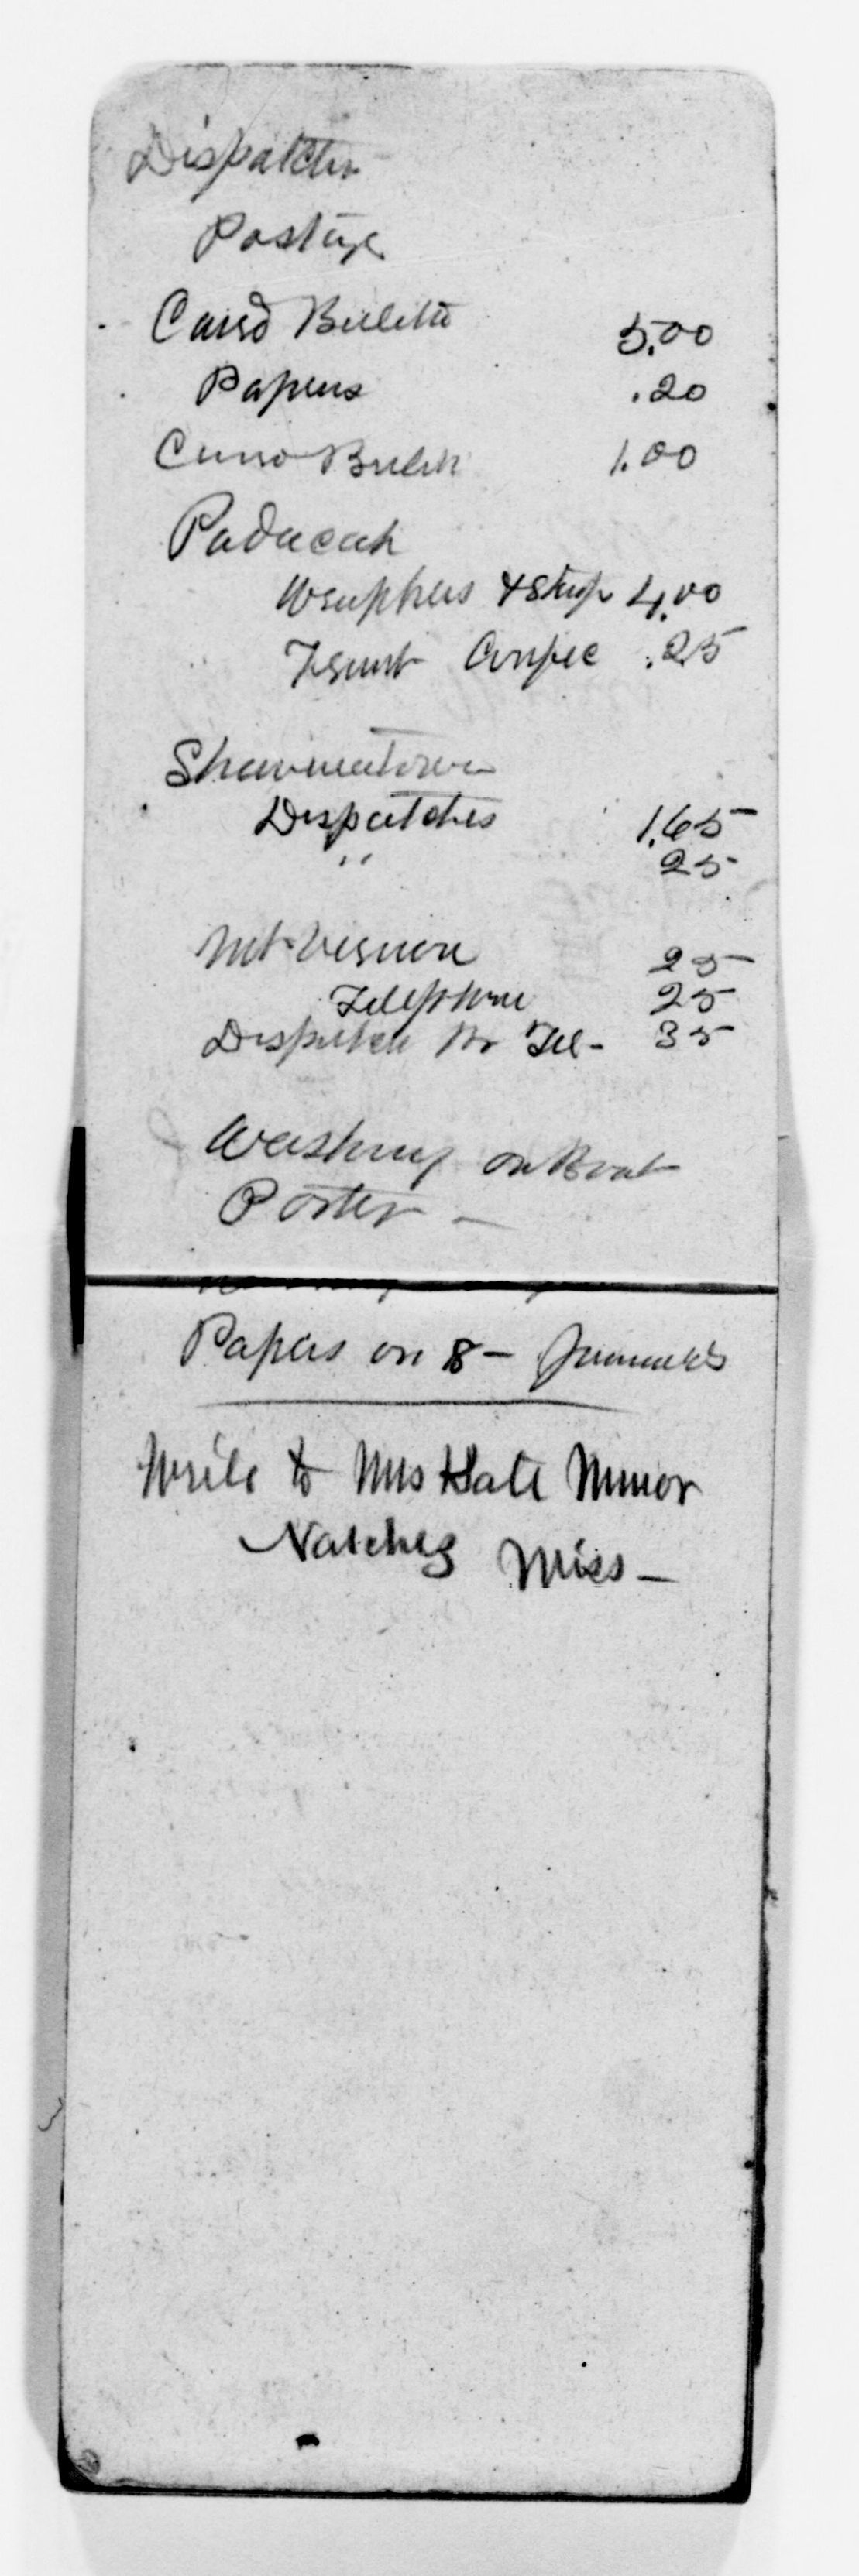 Dispatches
Postage
Cairo Bulletin 5.00
Papers .20
Cairo Bulletin 1.00
Paducah
Wrappers & Stmps 4.00
.25
Shawneetown
Dispatches 1.65
" 25
Mt Vernon 25
Telephone 25
Dispatch Tel- 35
Washing on Boat
Porter -
Papers on 8 -
Write to Mrs Kate Minor
Natchez Miss -